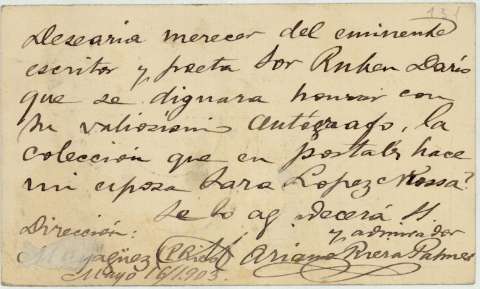 131
Desearia merecer del eminente
escritor y poeta Sor Ruben Dario
que se dignara honrar con
su valiosisimo autógrafo, la
colección que en postales hace
mi esposa Sara Lopez
Se lo agradecerá
y admirador
Dirección:
Mayagüez P. Rico
Mayo 16/1903.